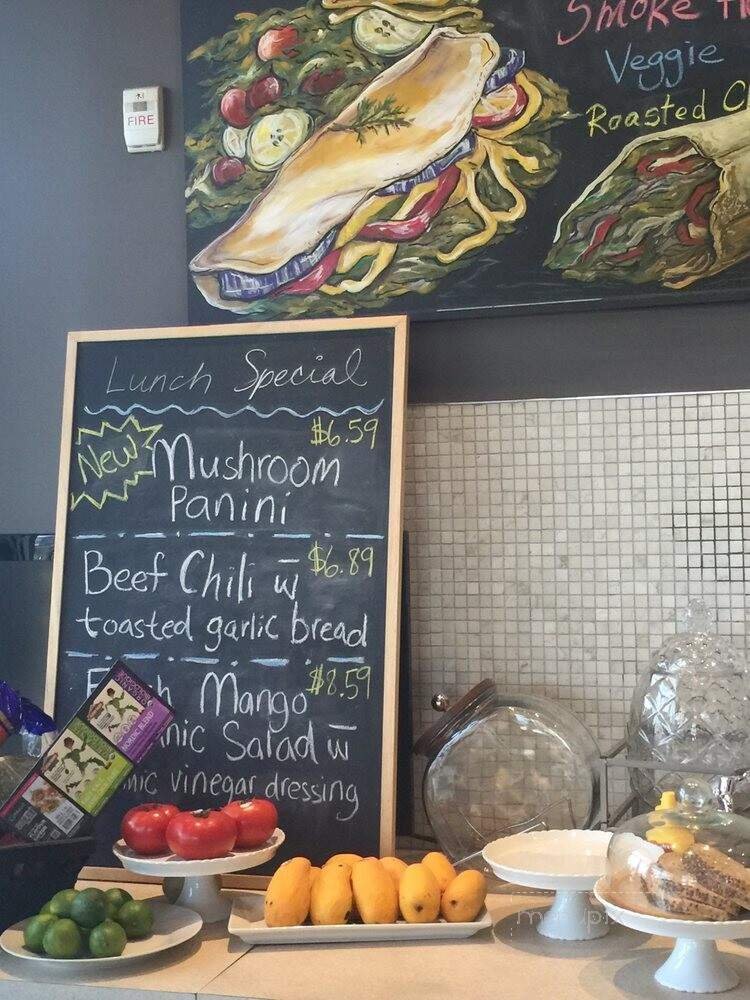 Smoke
Veggie
Roasted
FIRE
Lunch Special
New
$6.59
Mushroom
Panini
$6.89
Beef Chili w̅
toasted garlic bread
$8.59
Mango
Salad w̅
vinegar dressing